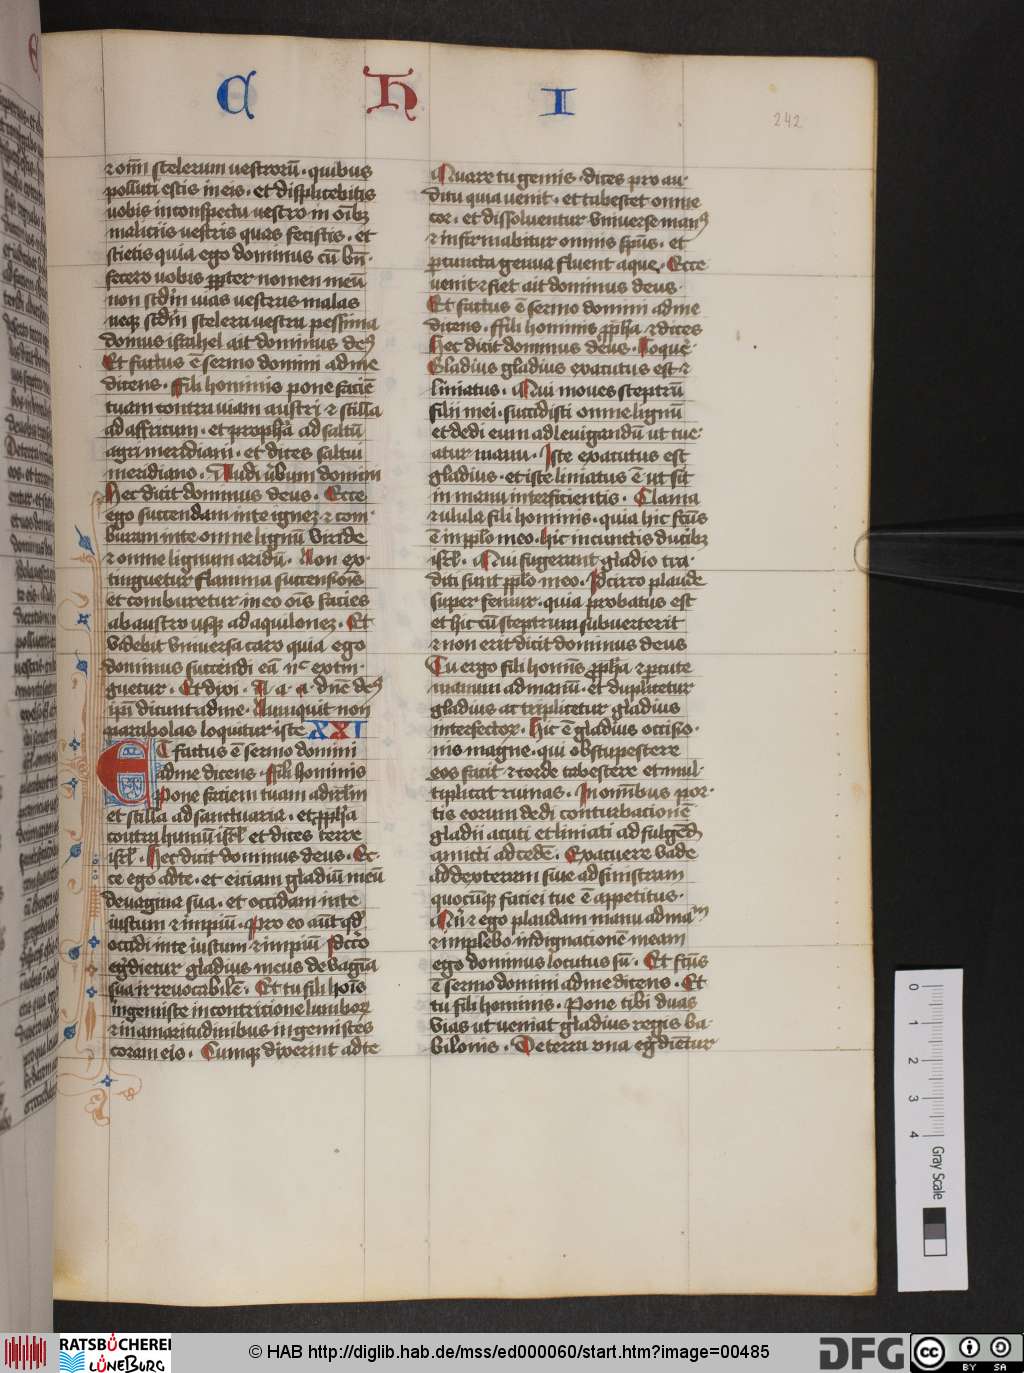 C H I
242
⁊ om̅i̅ scelerum vestrorū · quibus
polluti estis in eis · et displicebitis
vobis in conspectu vestro in oi̅bꝫ
maliciis vestris quas fecistis · et
scietis quia ego dominus cū bn̄
fecero vobis ꝓpter nomen meū
non scd̄m vias vestras malas
neqꝫ scd̄m scelera vestra pessima
domus israhel ait dominus deꝰ
Et factus ē sermo domini ad me
dicens · ffili hominis pone faciē
tuam contra viam austri ⁊ stilla
ad affricum · et propha̅ ad saltū
agri meridiani · et dices saltui
meridiano · Audi v̅bum domini
Hec dicit dominus deus · Ecce
ego succendam in te ignez ⁊ com
buram in te omne lignū viride
⁊ omne lignum aridū · Non ex
tinguetur flamma succensiōis
et comburetur in eo oīs facies
ab austro usqꝫ ad aquilonez · Et
videbit vniversa caro quia ego
dominus succendi eā nᶜ extin
guetur · Et dixi · A · a · a · dn̅e deꝰ
ip̅i dicunt ad me · Nunquit non
parabolas loquitur iste XXI
Et factus ē sermo domini
ad me dicens · ffili hominis
Pone faciem tuam ad irlm̅
et stilla ad sanctuaria · et ꝓpha̅
contra humū isrl̅ et dices terre
isrl̅ · Hec dicit dominus deus · Ec
ce ego ad te · et eiciam gladiū meū
de vagina sua · et occidam in te
iustum ⁊ impiū · Pro eo aūt qd̅
occidi in te iustum ⁊ impiū Idcc̅o
eg̅dietur gladius meus de vagīa
sua irrevocabilē · Et tu fili hoīs
ingemisce in contricione lumboꝝ
⁊ in amaritudinibus ingemisces
coram eis · Cumqꝫ dixerint ad te
Quare tu gemis · dices pro au
ditu quia venit · et tabescet omne
cor · et dissolventur vniverse manꝰ
⁊ infirmabitur omnis sp̅us · et
ꝑ cuncta genua fluent aque · Ecce
venit ⁊ fiet ait dominus deus ·
Et factus ē sermo domini ad me
dicens · ffili hominis ꝓpha̅ ⁊ dices
Hec dicit dominus deus · Loque̅
Gladius gladius exacutus est ⁊
limatus · Qui moves sceptrū
filii mei · succidisti omne lignū
et dedi eum ad levigandū ut tue
atur manu · Iste exacutus est
gladius · et iste limatus ē ut sit
in manu interficientis · Clama
⁊ ulula fili hominis · quia hic fc̅us
ē in pplo meo · hic in cunctis ducibꝫ
isrl̅ · Qui fugerant gladio tra
diti sunt pplo meo · Idcirco plaude
super femur · quia probatus est
et hic cū sceptrum subverterit
⁊ non erit dicit dominus deus
Tu ergo fili homīs ꝓpha̅ ⁊ ꝑcute
manum ad manū · et duplicetur
gladius ac triplicetur gladius
interfector̅ · hic ē gladius occisio
nis magne · qui obstupescere
eos facit ⁊ corde tabescere et mul
tiplicat ruinas · In omībus por
tis eorum dedi conturbacionē
gladii acuti et limati ad fulgēd̅
amicti ad cedē · Exacuere vade
ad dexteram sive ad sinistram
quocūqꝫ faciei tue ē appetitus ·
Qin̅ ⁊ ego plaudam manu ad maᵐ
⁊ implebo indignacionē meam
ego dominus locutus sū · Et fc̅us
ē sermo domini ad me dicens · Et
tu fili hominis · Pone tibi duas
vias ut veniat gladius regis ba
bilonis · De terra vna eg̅dientur
0 1 2 3 4
Gray Scale
RATSBÜCHEREI
LÜNEBURG
© HAB http://diglib.hab.de/mss/ed000060/start.htm?image=00485
DFG
cc BY SA